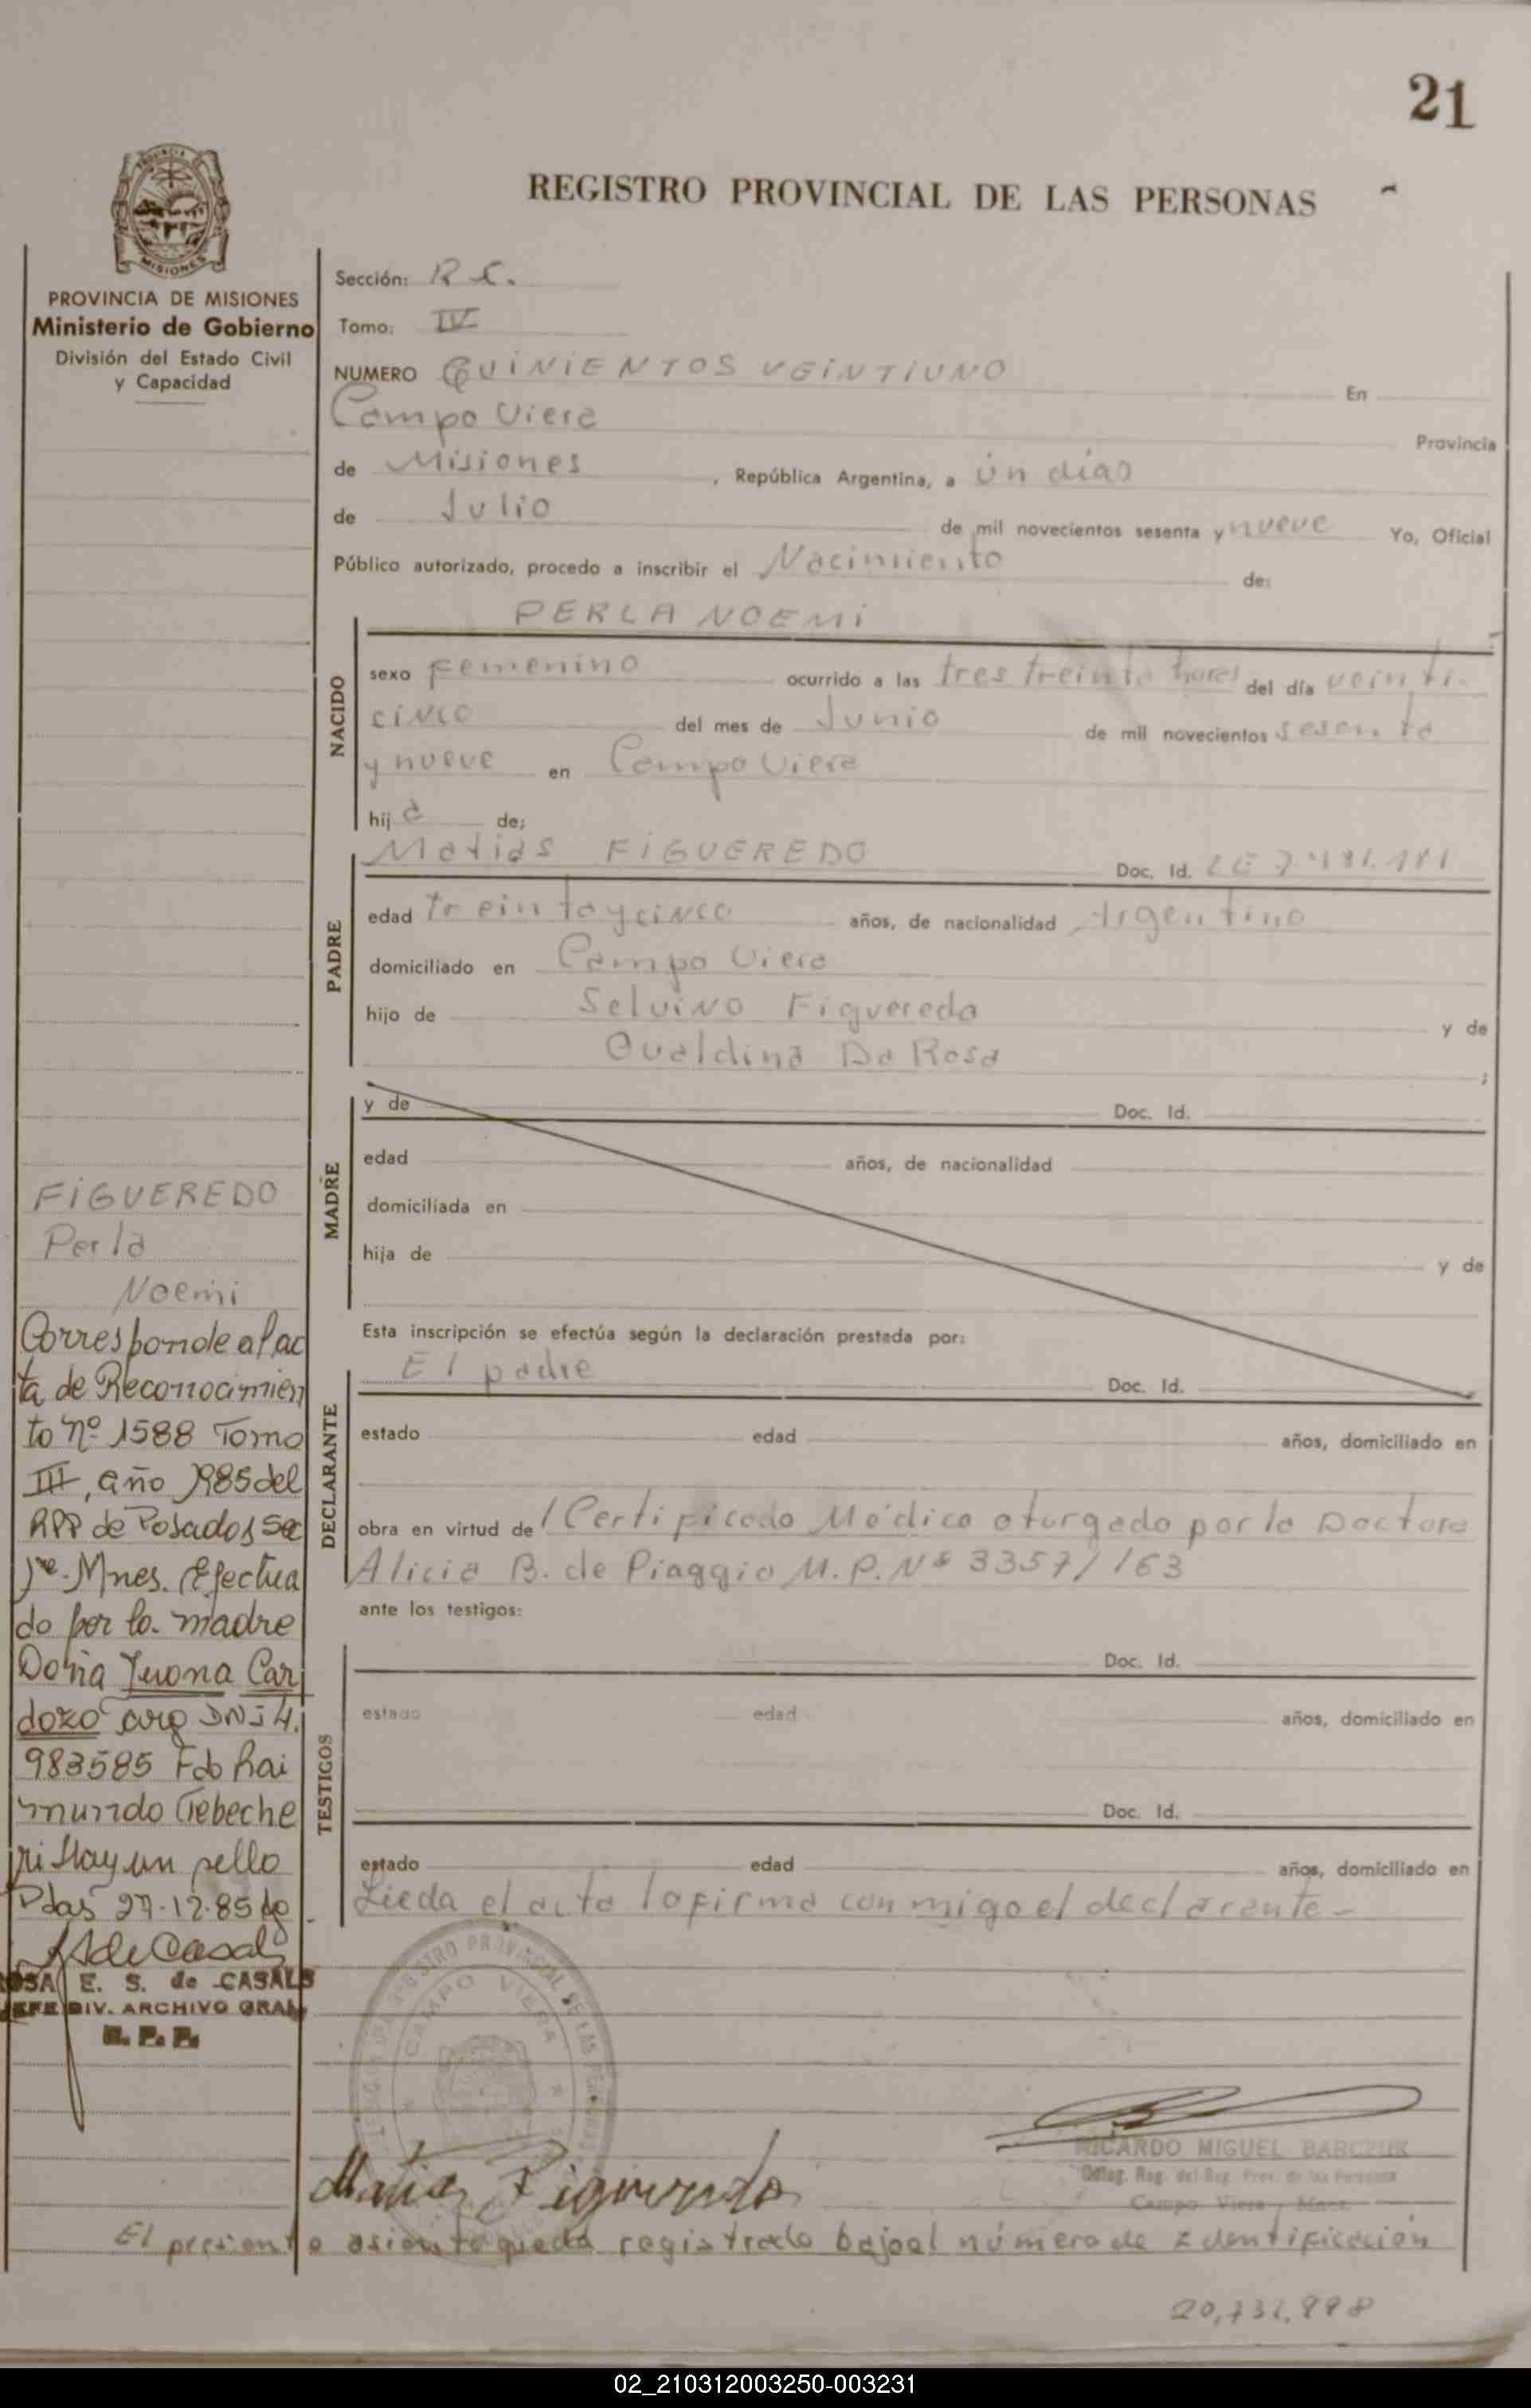 21
REGISTRO PROVINCIAL DE LAS PERSONAS
PROVINCIA DE MISIONES
Ministerio de Gobierno
División del Estado Civil
y Capacidad
Sección: R C.
Tomo: IV
NUMERO QUINIENTOS VEINTIUNO En
Campo Viera Provincia
de Misiones, República Argentina, a Un días
de Julio de mil novecientos sesenta y nueve Yo, Oficial
Público autorizado, procedo a inscribir el Nacimiento de:
PERLA NOEMI
NACIDO
sexo Femenino ocurrido a las tres treinta horas del día veinti-
cinco del mes de Junio de mil novecientos sesenta
y nueve en Campo Viera
hija de;
PADRE
Matias FIGUEREDO Doc. Id. LE
edad treinta y cinco años, de nacionalidad Argentino
domiciliado en Campo Viera
hijo de Selvino Figueredo y de
Oualdina Da Rosa ;
MADRE
y de Doc. Id.
edad años, de nacionalidad
domiciliada en
hija de y de
Esta inscripción se efectúa según la declaración prestada por:
DECLARANTE
El padre Doc. Id.
estado edad años, domiciliado en
obra en virtud de 1 Certificado Médico oturgado por la Doctora
Alicia B. de Piaggio M. P. Nº 3357/163
ante los testigos:
TESTIGOS
Doc. Id.
estado edad años, domiciliado en
Doc. Id.
estado edad años, domiciliado en
Lieda el acta la firma conmigo el declarante-
FIGUEREDO
Perla
Noemi
Corresponde al ac
ta de Reconocimien
to nº 1588 Tomo
III, año 1985 del
RPP de Posadas Sec
1re. Mnes. Efectua
do por la madre
Doña Juona Car
dozo DNi 4.
983585 Fdo Rai
mundo
Hay un sello
Pdas 27.12.85
ROSA E. S. de CASALS
JEFE DIV. ARCHIVO GRAL
R. P. P.
CAMPO VIERA
Matias Figueredo
RICARDO MIGUEL BARCZUK
Deleg. Reg. del Reg. Prov. de las Personas
Campo Viera, Mnes.
El presente asiento queda registrado bajo el número de Identificación
02_210312003250-003231